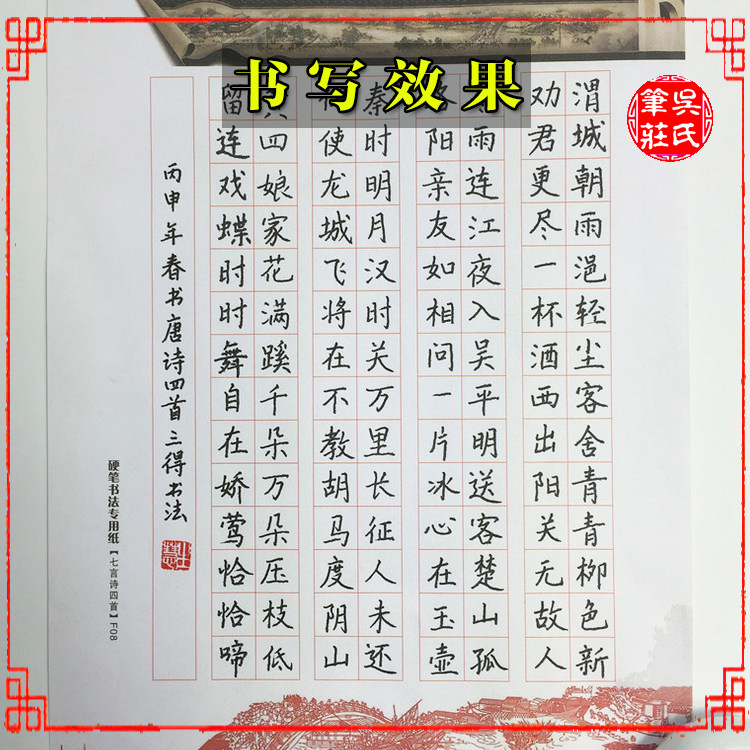 书写效果
吳氏
筆莊
渭城朝雨浥轻尘客舍青青柳色新
劝君更尽一杯酒西出阳关无故人
雨连江夜入吴平明送客楚山孤
阳亲友如相问一片冰心在玉壶
秦时明月汉时关万里长征人未还
使龙城飞将在不教胡马度阴山
四娘家花满蹊千朵万朵压枝低
留连戏蝶时时舞自在娇莺恰恰啼
丙申年春书唐诗四首三得书法
硬笔书法专用纸【七言诗四首】F08